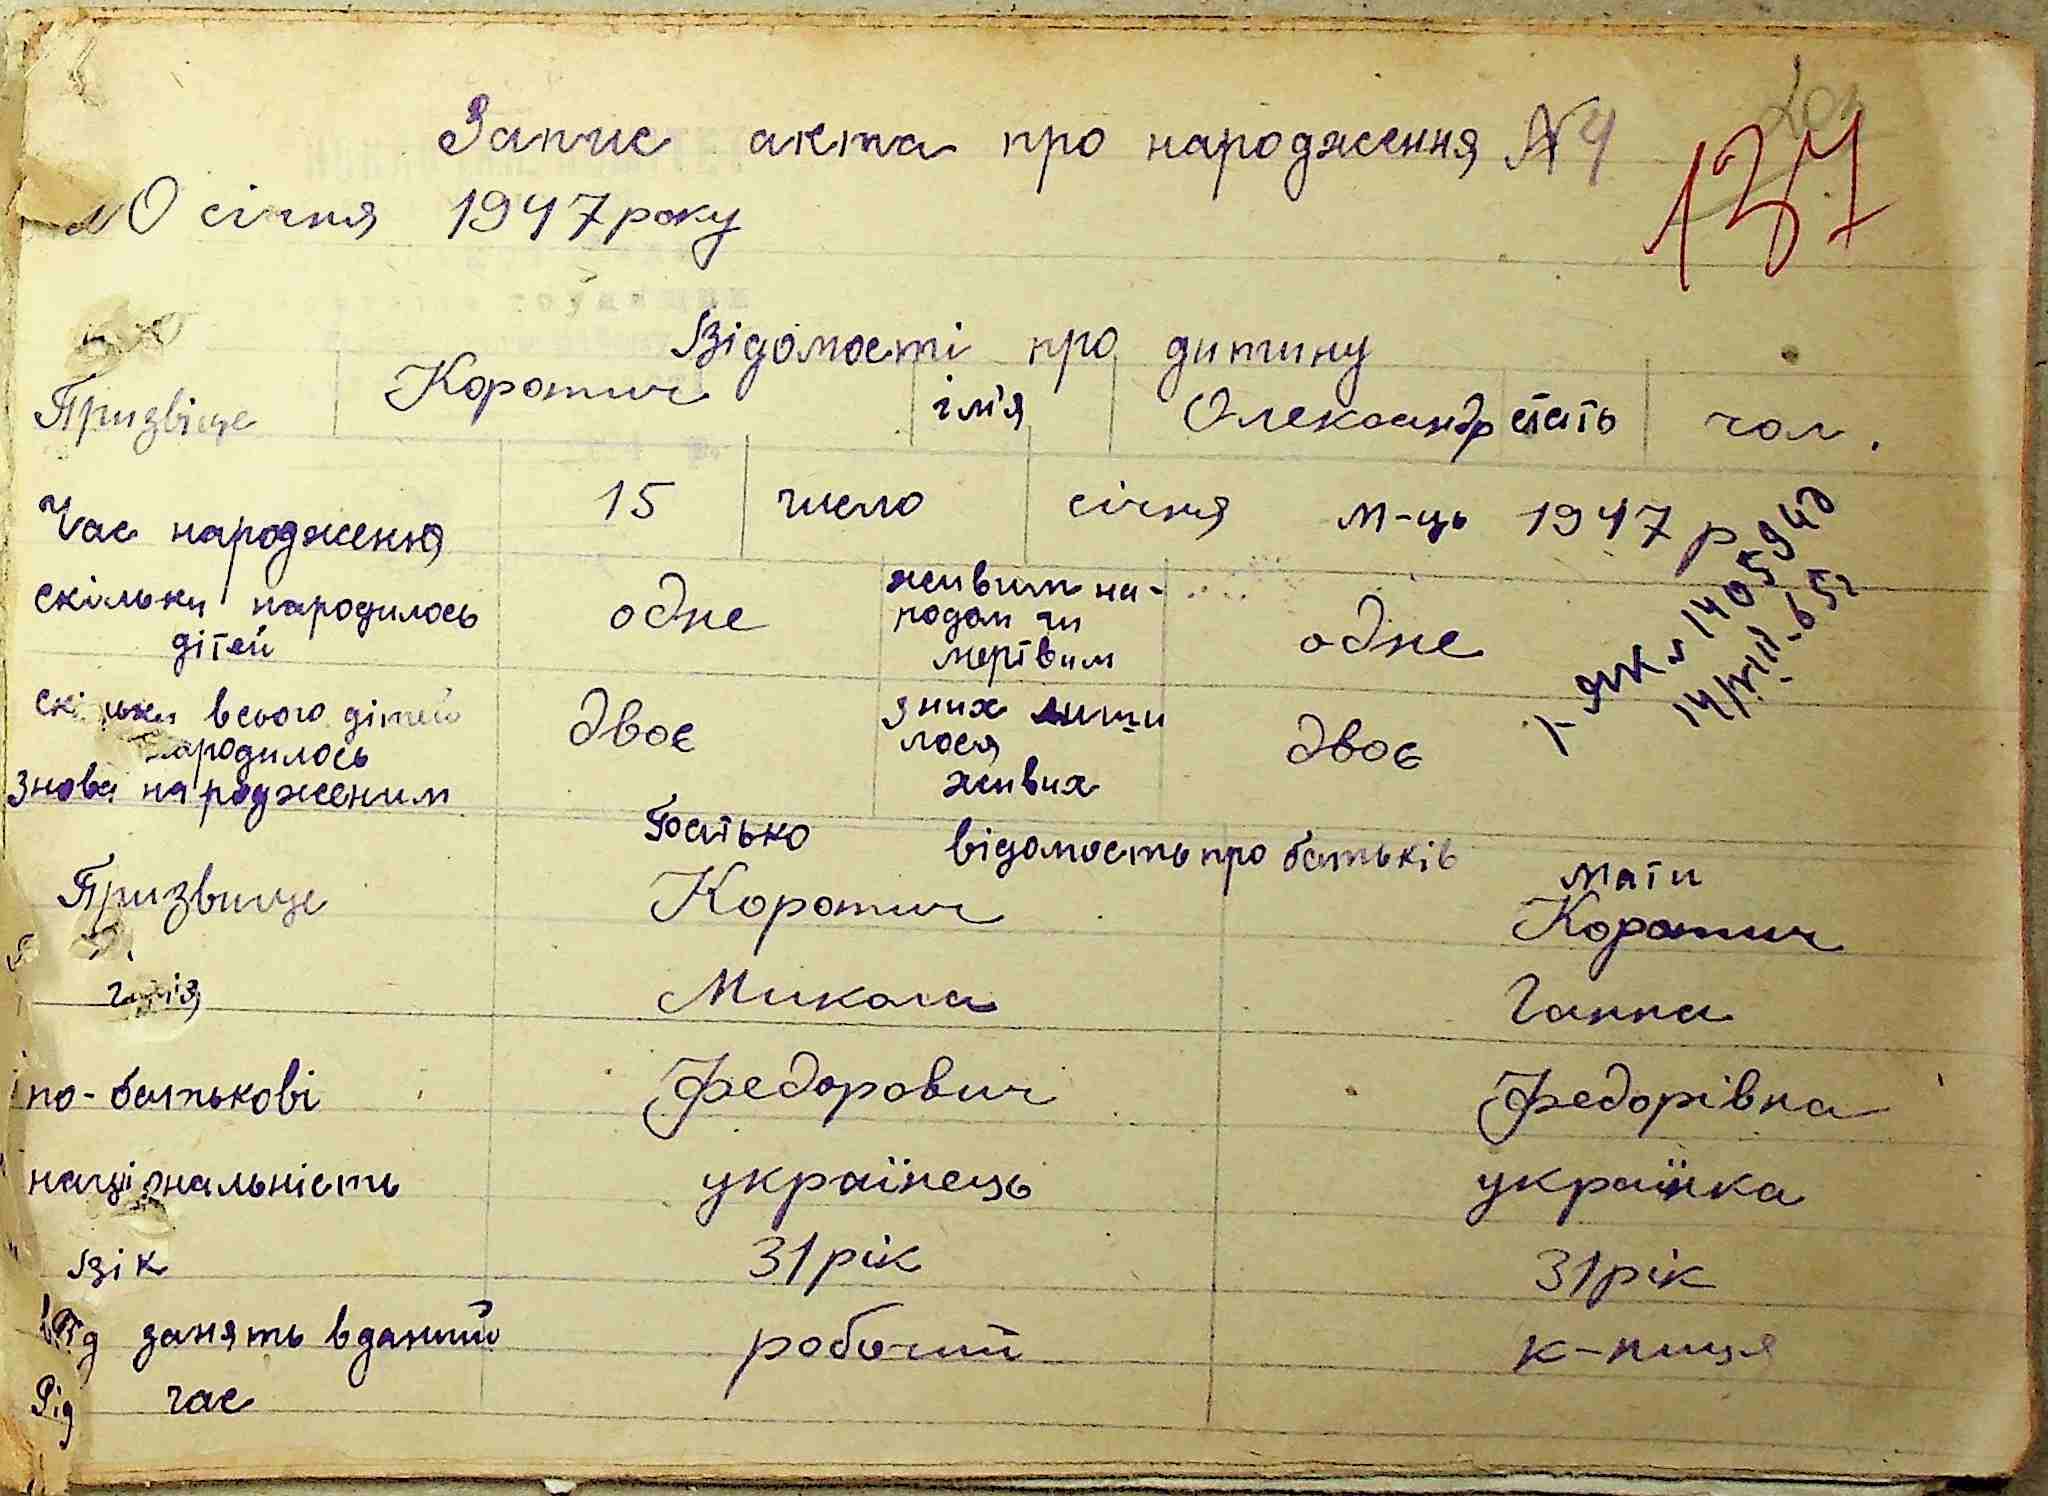 Запис акта про народження №4
137
20 січня 1947 року
Відомості про дитину
Призвіще Коротич ім'я Олександр стать чол.
Час народження 15 число січня м-ць 1947 р
скільки народилось дітей одне живим на-родом чи мертвим одне
скільки всього дітей народилось знова народженим двоє з них лиши лося живих двоє
14/VIII-65г
Батько відомость про батьків мати
Призвище Коротич Коротич
ім'я Микола Ганна
по-батькові Федорович Федорівна
національність українець українка
Вік 31 рік 31 рік
занять в даний час робочий к-ниця
Рід